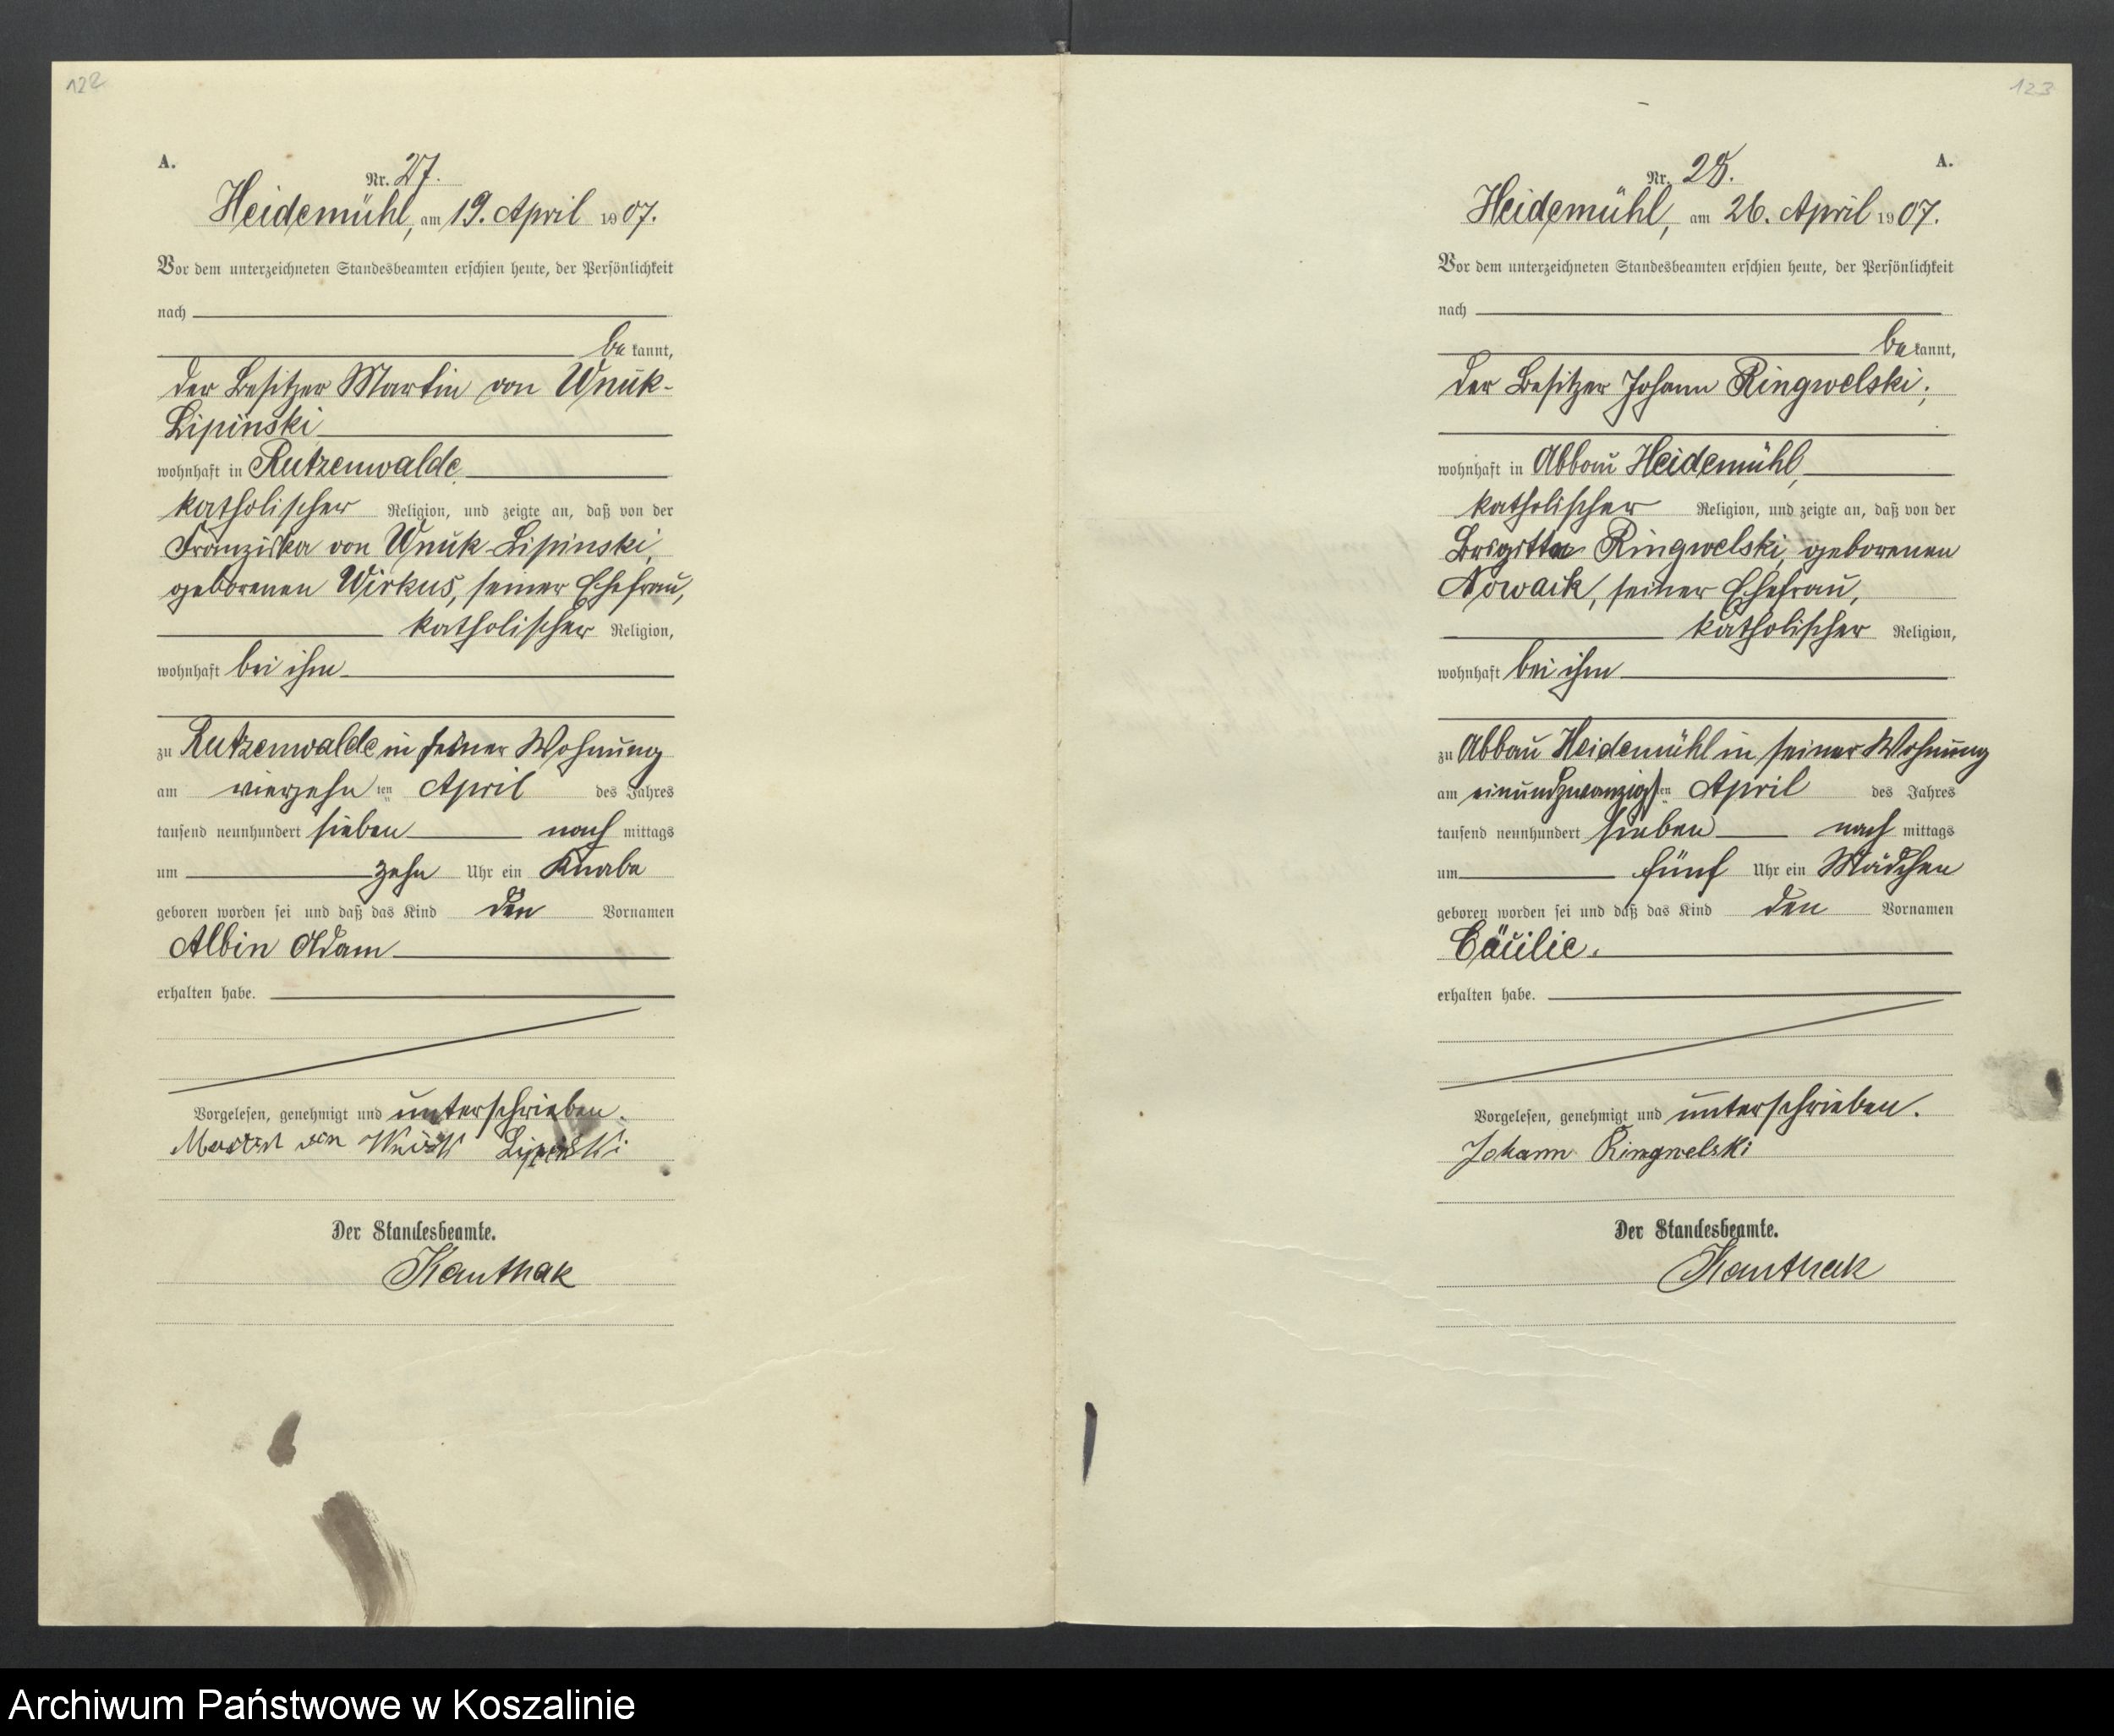 122
A.
Nr. 27.
Heidemühl, am 19. April 1907.
Vor dem unterzeichneten Standesbeamten erschien heute, der Persönlichkeit
nach
bekannt,
der Besitzer Martin von Wnuk-
Lipinski
wohnhaft in Rutzenwalde,
katholischer Religion, und zeigte an, daß von der
Franziska von Wnuk-Lipinski,
geborenen Wirkus, seiner Ehefrau,
katholischer Religion,
wohnhaft bei ihm
zu Rutzenwalde in seiner Wohnung
am vierzehnten April des Jahres
tausend neunhundert sieben nachmittags
um zehn Uhr ein Knabe
geboren worden sei und daß das Kind den Vornamen
Albin Adam
erhalten habe.
Vorgelesen, genehmigt und unterschrieben.
Martin von Wnuk Lipinski
Der Standesbeamte.
Kanthak
123
A.
Nr. 28.
Heidemühl, am 26. April 1907.
Vor dem unterzeichneten Standesbeamten erschien heute, der Persönlichkeit
nach
bekannt,
der Besitzer Johann Ringwelski,
wohnhaft in Abbau Heidemühl,
katholischer Religion, und zeigte an, daß von der
Brigitta Ringwelski, geborenen
Nowack, seiner Ehefrau,
katholischer Religion,
wohnhaft bei ihm
zu Abbau Heidemühl in seiner Wohnung
am einundzwanzigsten April des Jahres
tausend neunhundert sieben nachmittags
um fünf Uhr ein Mädchen
geboren worden sei und daß das Kind den Vornamen
Cäcilie.
erhalten habe.
Vorgelesen, genehmigt und unterschrieben.
Johann Ringwelski
Der Standesbeamte.
Kanthak
Archiwum Państwowe w Koszalinie